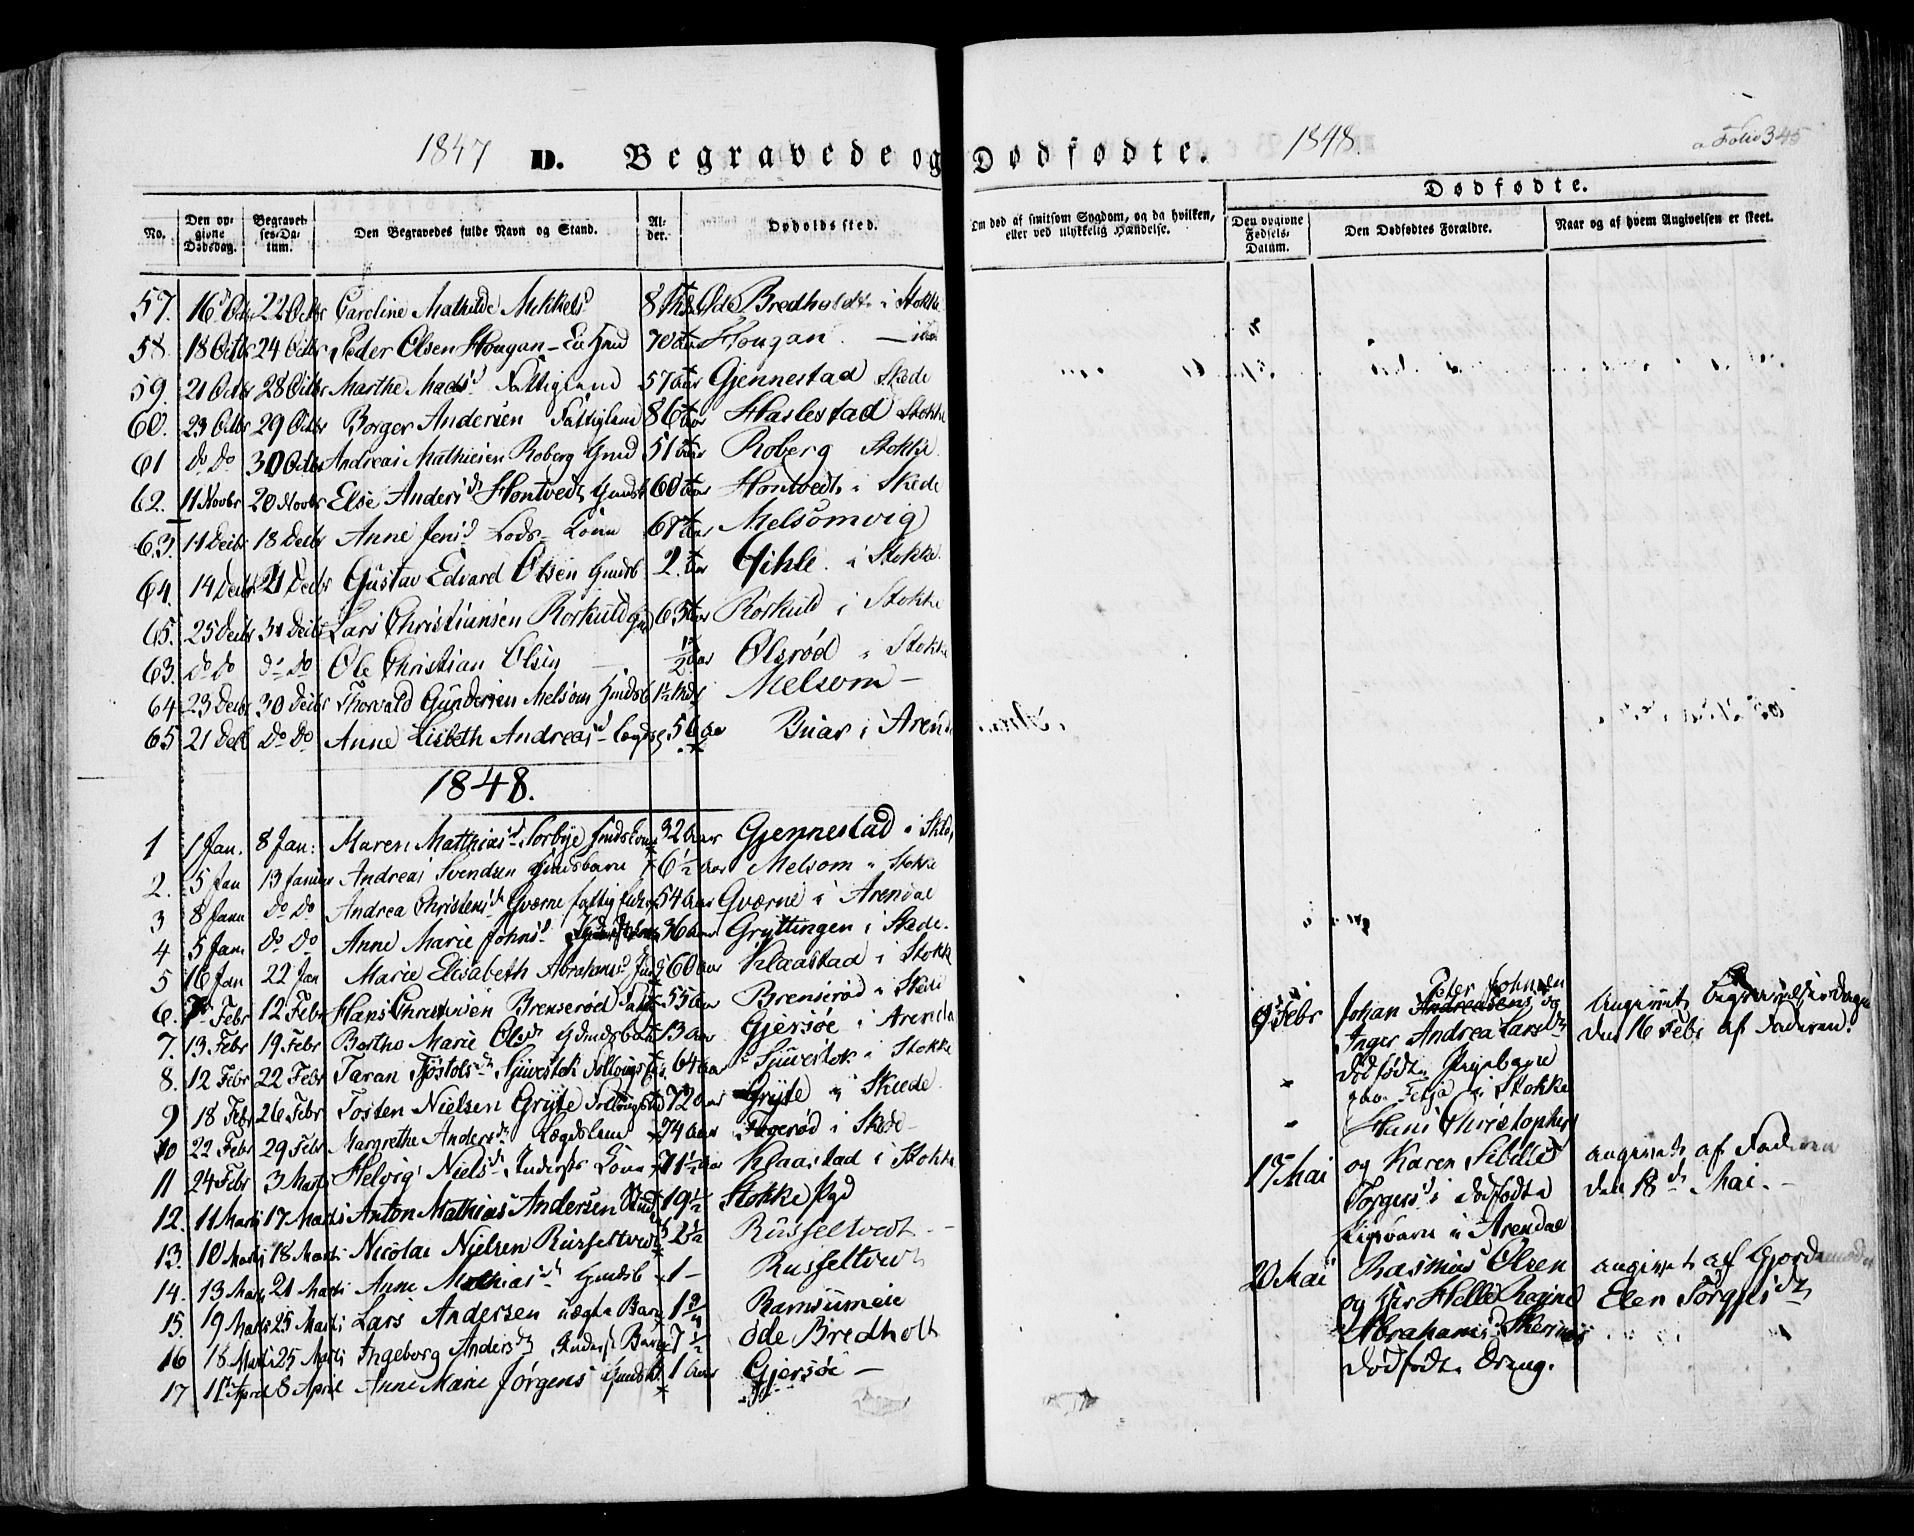 1847 D. Begravede og Dødfødte. 1848.
Folio 345
No.
Den opgivne Dødsdag.
Begravelses-Datum.
Den Begravedes fulde Navn og Stand.
Alder.
Opholdssted.
Om død af smitsom Sygdom, og da hvilken, eller ved ulykkelig Hændelse.
Dødfødte.
Den opgivne Fødsels-Datum.
Den Dødfødtes Forældre.
Naar og af hvem Angivelsen er skeet.
57. 16 Octbr 22 Octbr Caroline Mathilde Mikkelsd 8 Øde Bredholdt i Stokke
58. 18 Octbr 24 Octbr Peder Olsen Hougan 70 aar Hougan
59. 21 Octbr 28 Octbr Marthe Madsd Fattiglem 57 aar Gjennestad Skede
60. 23 Octbr 29 Octbr Borger Andersen 86 aar Haslestad Stokke
61 Do Do 30 Octbr Andreas Mathiesen Roberg Gmd 51 aar Roberg Stokke
62. 11 Novbr 20 Novbr Else Andersd Hontvedt 60 aar Hontvedt i Skede
63. 11 Decbr 18 Decbr Anne Jensd Lods Kone 67 aar Melsomvig
64. 14 Decbr 21 Decbr Gustav Edvard Olsen Gmdsb 2 aar Gihle i Stokke
65. 25 Decbr 31 Decbr Lars Christiansen Rorkuld 65 aar Rorkuld i Stokke
63. Do Do Do Do Ole Christian Olsen 1/2 aar Olsrød i Stokke
64 23 Decbr 30 Decbr Thorvald Gundersen Melsom Gmdsb Melsom
65 21 Decb Do Do Anne Lisbeth Andreasd 56 aar Buar i Arendal
1848.
1 1 Jan. 8 Jan: Maren Matthiasd Sorbye Gmdskone 32 aar Gjennestad i Skede
2. 5 Jan 13 Januar Andreas Svendsen Gmdsbarn 6 1/2 aar Melsom i Stokke
3 8 Janu Do Do Andrea Christensd Gværne 54 aar Gværne i Arendal
4 5 Jan Do Do Anne Marie Johnsd 36 aar Gryttingen i Skede.
5 16 Jan 22 Jan Marie Elisabeth Abrahamsd 60 aar Klaastad i Stokke
6. Febr 12 Febr Hans Christensen Brenserød 55 aar Brenserød i Skede
7. 13 Febr 19 Febr Bertha Marie Olsd Gmdsbarn 13 aar Gjersøe i Arendal
8. 12 Febr 22 Febr Taran Tjøstolsd Sjuvestok 64 aar Sjuvestok i Stokke
9 18 Febr 26 Febr Tosten Nielsen Gryte 72 aar Gryte i Skede.
10 22 Febr 29 Febr Margrethe Andersd Lægdslem 74 aar Fagerød i Skede
11 24 Febr 3 Marts Helvig Nielsd Kone 71 1/2 aar Klaastad i Stokke
12. 11 Marts 17 Marts Anton Mathias Andersen 19 1/2 Stokke Pgd
13. 10 Marts 18 Marts Nicolai Nielsen Russeltvedt 2 1/2 Russeltvedt
14. 13 Marts 21 Marts Anne Mathiasd Gmdsb 1 Russeltvedt
15. 19 Marts 25 Marts Lars Andersen uægte Barn 1 3/4 Ramsumeie
16 18 Marts 25 Marts Ingeborg Andersd Barn 7 1/2 Øde Bredholt
17 1 April 8 April Anne Marie Jørgens 1 aar Gjersøe
9 Febr Johan Andreasens Peter Johnsen og
Inger Andrea Larsd
dødfødte Pigebarn
i Stokke
Angivet Begravelsesdagen
den 16 Feb: af Faderen.
17 Mai Hans Christopher
og Karen Sibille
Torgersd dødfødte
i Arendal
angivet af Faderen
den 18de Mai.
20 Mai Rasmus Olsen
og Helle Ragine
Abrahamsd
dødfødte Dreng.
angivet af Gjordemoder
Elen Torgersd